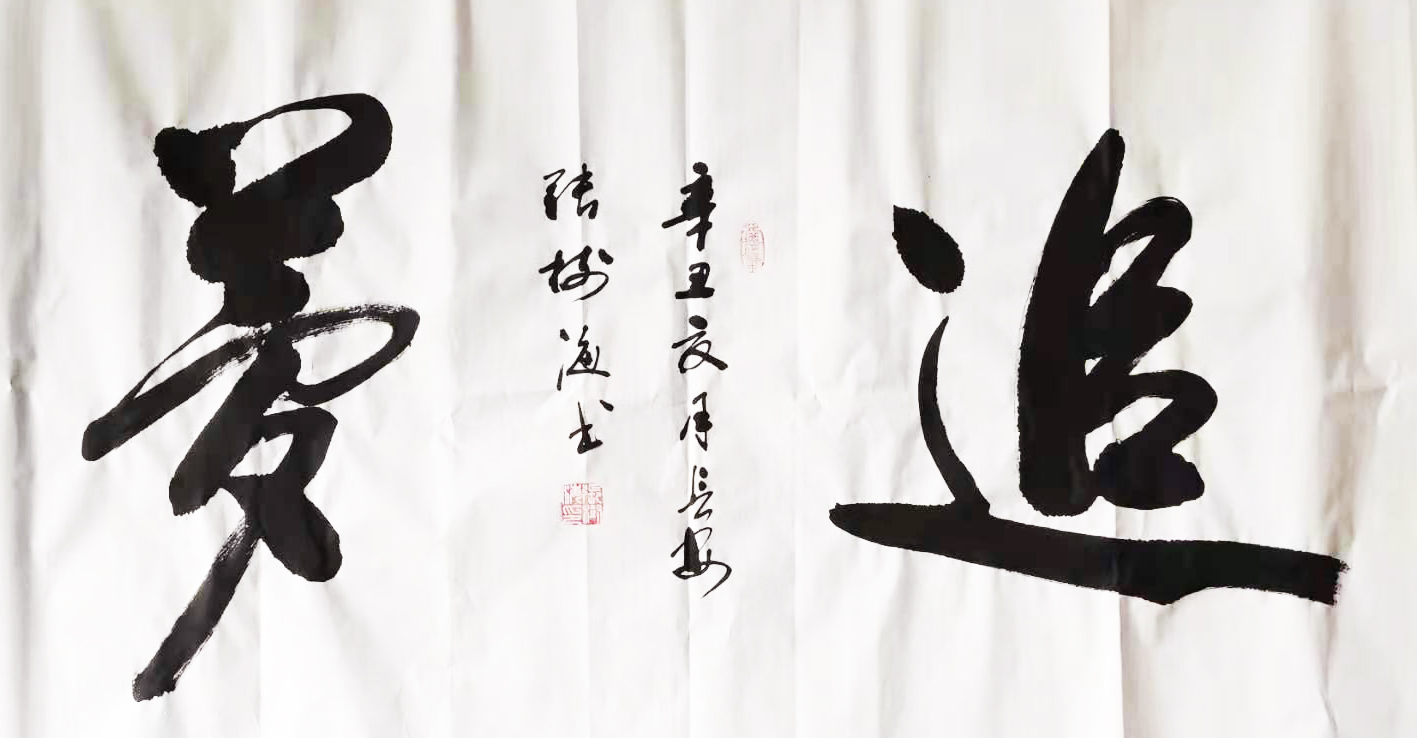 追
夢
辛丑夏月長安
張樹海書